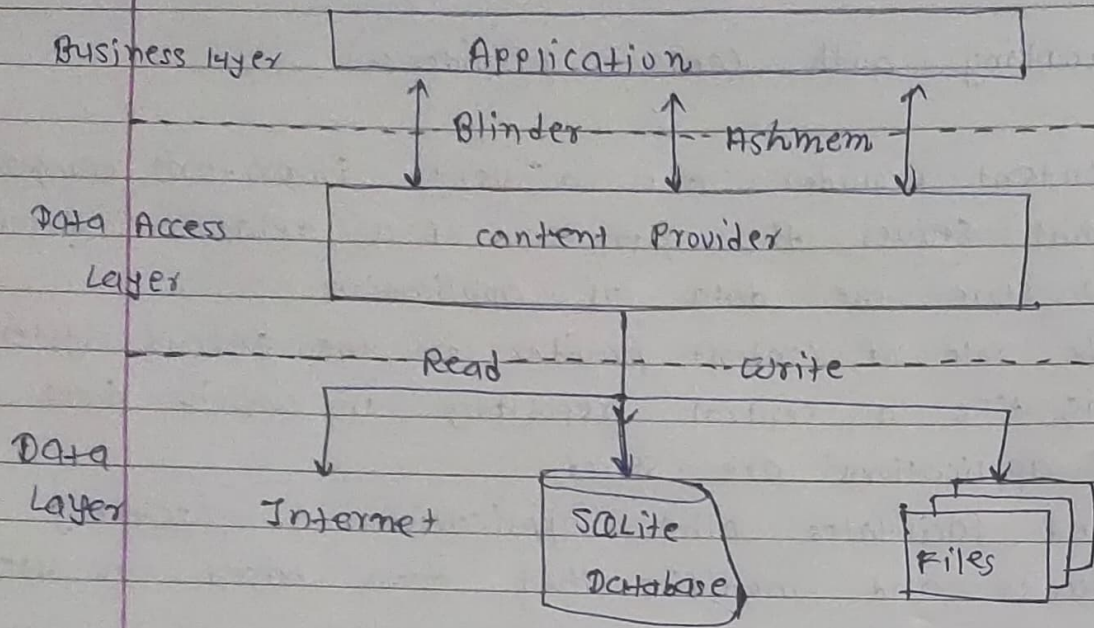 Business layer
Application
Blinder
Ashmem
Data Access
Layer
content Provider
Read
Write
Data
Layer
Internet
SQLite
Database
Files